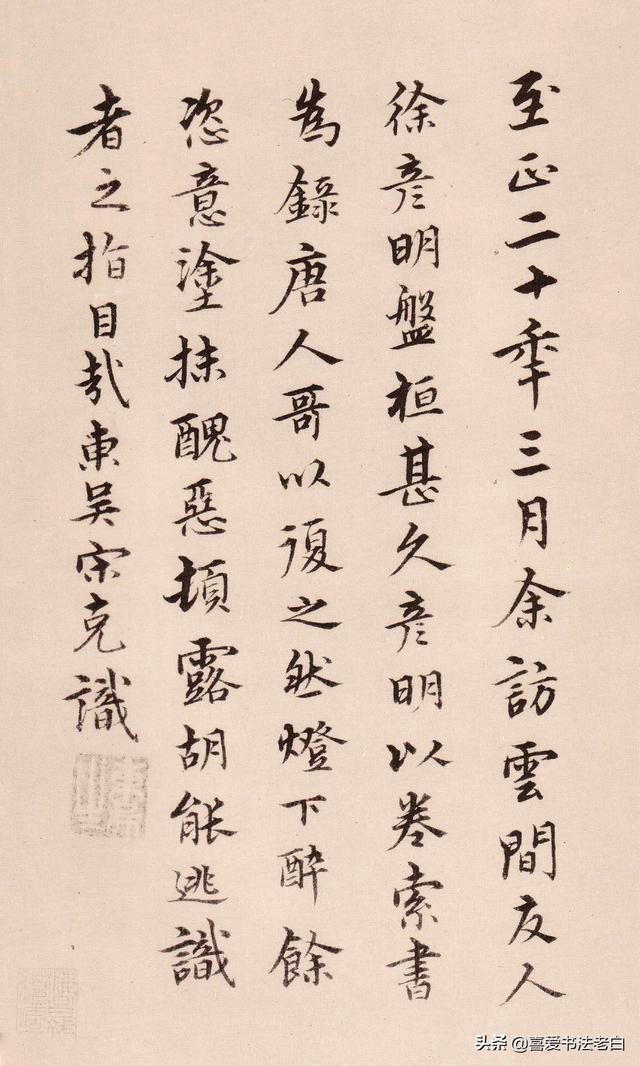 至正二十年三月余訪雲間友人
徐彦明盤桓甚久彦明以卷索書
為錄唐人哥以復之然燈下醉餘
恣意塗抹醜惡頓露胡能逃識
者之指目哉東吴宋克識
头条 @喜爱书法老白